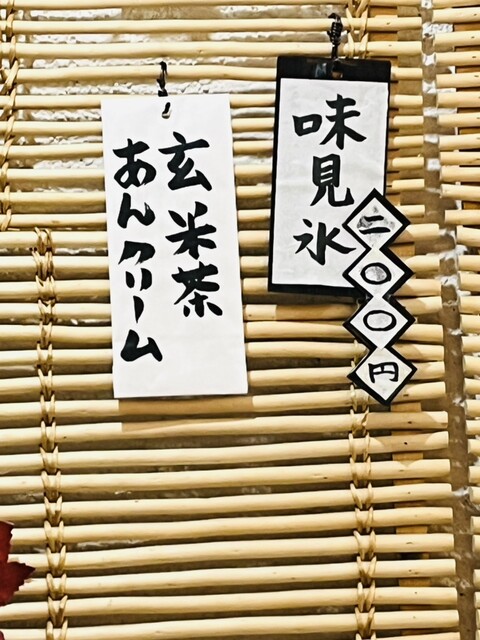 味見氷
二〇〇円
玄米茶
あんクリーム